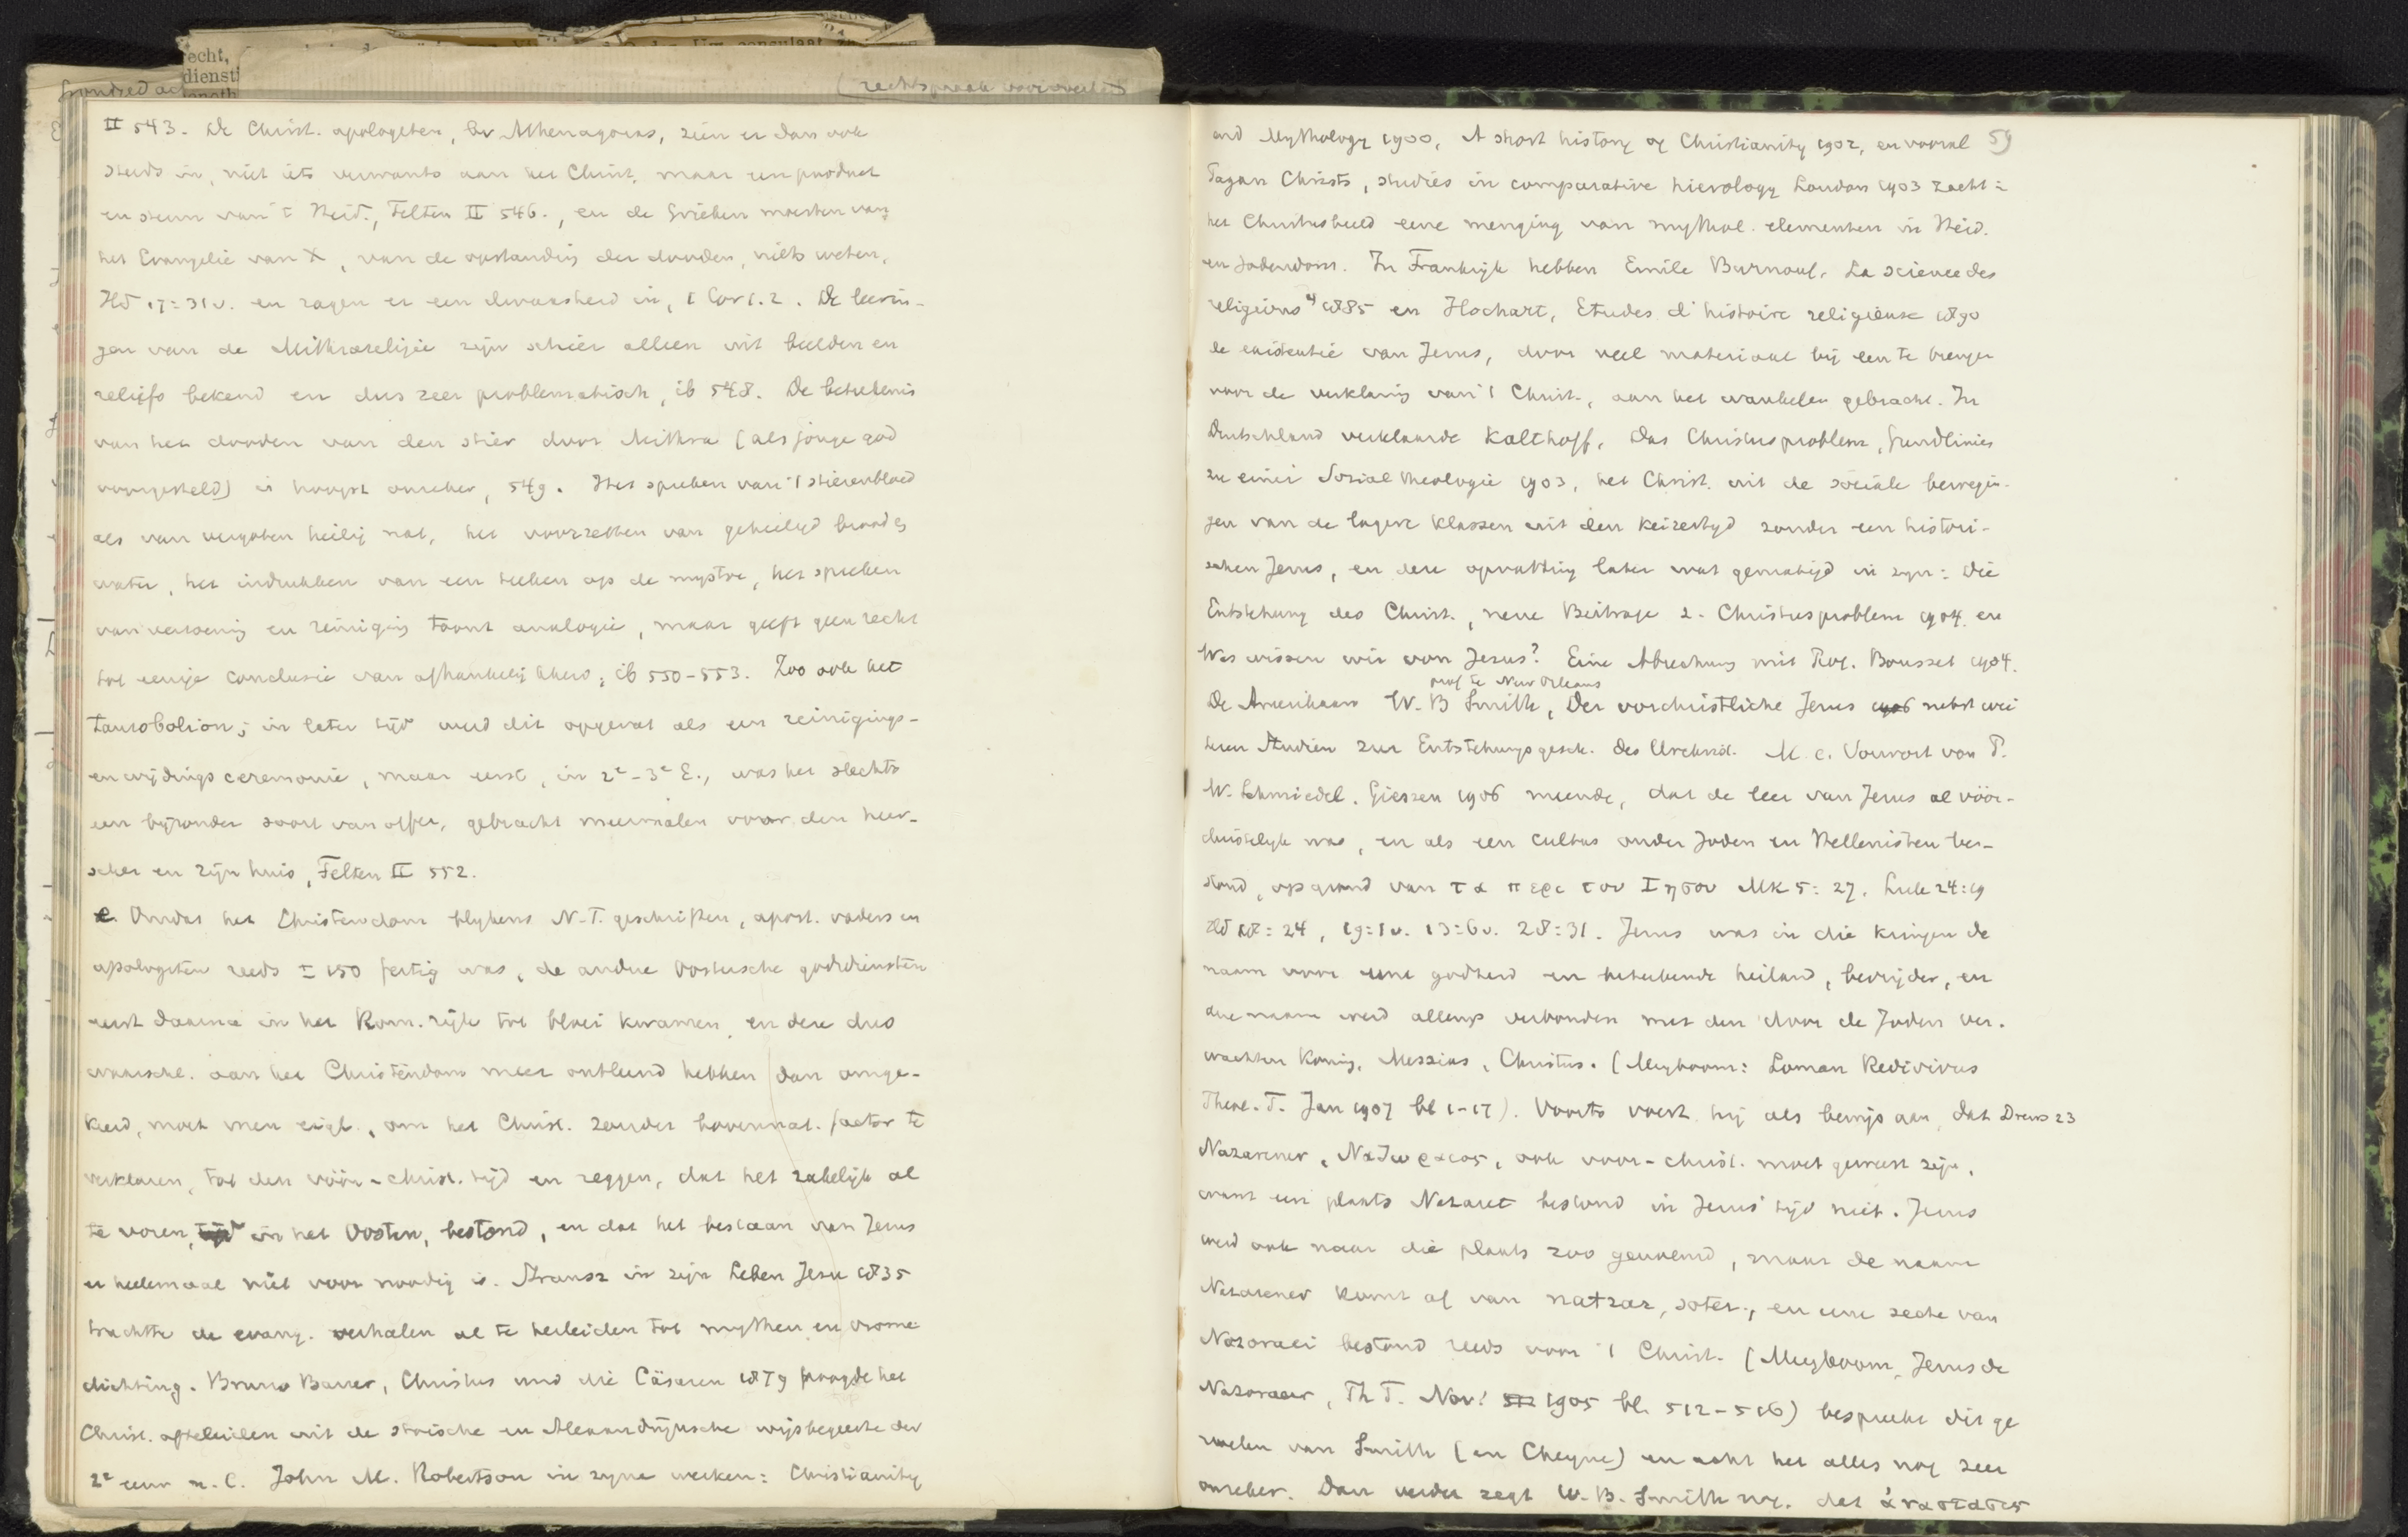 echt,
dienst
(rechtspraak
II 543. De Christ. apologeten, bv Athenagoras, zien er dan ook
steeds in, niet iets verwants aan het Christ. maar een product
en steun van 't Heid., Felten II 546., en de Grieken moesten van
het Evangelie van X, van de opstanding der dooden, niets weten,
Hd 17:31v. en zagen er een dwaasheid in, I Cor 1.2. De leerin-
gen van de Mithrareligie zijn schier alleen uit beelden en
reliefs bekend en dus zeer problematisch, ib 548. De beteekenis
van het dooden van den stier door Mithra (als jonge god
voorgesteld) is hoogst onzeker, 549. Het spreken van 't stierenbloed
als van vergoten heilig nat, het voorzetten van geheiligd brood en
water, het indrukken van een teeken op de mystae, het spreken
van verzoening en reiniging toont analogie, maar geeft geen recht
tot eenige conclusie van afhankelijkheid, ib 550-553. Zoo ook het
taurobolion; in later tijd werd dit opgevat als een reinigings-
en wijdings ceremonie, maar eerst, in 2e-3e E., was het slechts
een bijzonder soort van offer, gebracht meermalen voor den heer-
scher en zijn huis, Felten II 552.
e. Omdat het Christendom blijkens N.T. geschriften, apost. vaders en
apologeten reeds ± 150 fertig was, de andre Oostersche godsdiensten
eerst daarna in het Rom. rijk tot bloei kwamen, en deze dus
waarschl. aan het Christendom meer ontleend hebben dan omge-
keerd, moet men eigl., om het Christ. zonder bovennat. factor te
verklaren, tot den vóór-christ. tijd en zeggen, dat het zakelijk al
te voren, in het Oosten, bestond, en dat het bestaan van Jezus
er heelemaal niet voor noodig is. Strausz in zijn Leben Jesu 1835
trachtte de evang. verhalen al te herleiden tot mythen en vrome
dichting. Bruno Bauer, Christus und die Cäsaren 1879 poogde het
Christ. afteleiden uit de stoische en Alexandrijnsche wijsbegeerte der
2e eeuw n.C. John M. Robertson in zijne werken: Christianity
and Mythology 1900, A short history of Christianity 1902, en vooral 59
Pagan Christs, studies in comparative hierology London 1903 zocht in
het Christusbeeld eene menging van mythol. elementen in Heid.
en Jodendom. In Frankrijk hebben Emile Burnouf, La science des
religions 4 1885 en Hochart, Etudes d'histoire religieuse 1890
de existentie van Jezus, door veel materiaal bij een te brengen
voor de verklaring van 't Christ., aan het wankelen gebracht. In
Deutschland verklaarde Kalthoff, Das Christusproblem, Grundlinien
zu einer Sozialtheologie 1903, het Christ. uit de sociale bewegin-
gen van de lagere klassen uit den keizertijd zonder een histori-
schen Jezus, en deze opvatting later wat gematigd in zijn: Die
Entstehung des Christ., neue Beiträge z. Christusproblem 1904 en
Was wissen wir von Jesus? Eine Abrechnung mit Prof. Bousset 1904.
prof te New Orleans
De Amerikaan W. B Smith, Der vorchristliche Jesus 1906 nebst wei
teren Studien zur Entstehungsgesch. des Urchrist. M. e. Vorwort von P.
W. Schmiedel. Giessen 1906 meende, dat de leer van Jezus al vóór-
christelijk was, en als een cultus onder Joden en Hellenisten be-
stond, op grond van τα περι του Ιησου Mk 5:27. Luk 24:19
Hd 18:24, 19:1v. 13:6v. 28:31. Jezus was in die kringen de
naam voor eene godheid en beteekende heiland, bevrijder, en
die naam werd allengs verbonden met den door de Joden ver-
wachten Koning, Messias, Christus. (Meyboom: Loman Redivivus
Theol. T. Jan 1907 bl 1-17). Voorts voert hij als bewijs aan, dat Drews 23
Nazarener, Ναζωραιος, ook voor-christ. moet geweest zijn,
want een plaats Nazaret bestond in Jezus' tijd niet. Jezus
werd ook naar die plaats zoo genoemd, maar de naam
Nazarener komt af van natzar, soter, en eene secte van
Nazoraei bestond reeds voor 't Christ. (Meyboom, Jezus de
Nazoraeer, Th T. Nov! 1905 bl. 512-516) bespreekt dit ge
voelen van Smith (en Cheyne) en acht het alles nog zeer
onzeker. Dan verder zegt W. B. Smith nog, dat ἀναστασις